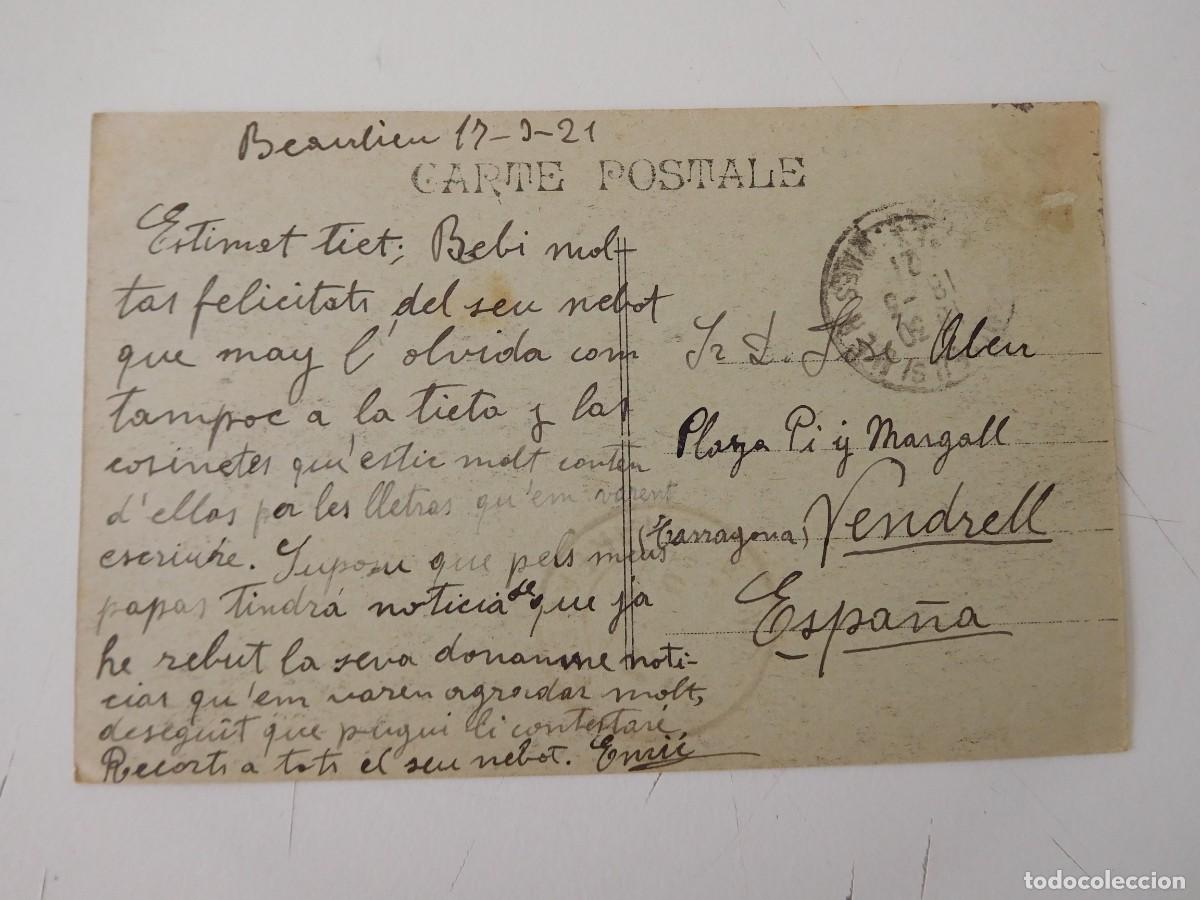 Beaulieu 17-3-21
CARTE POSTALE
Estimat tiet; Rebi mol-
tas felicitats del seu nebot
que may l'olvida com
tampoc a la tieta y las
cosinetes qu'estic molt conten
d'ellas per les lletras qu'em varent
escriure. Suposu que pels meus
papas tindrá noticias de que ja
he rebut la seva donanme noti-
cias qu'em varen agradar molt,
deseguit que pugui li contestaré
Recorts a tots el seu nebot. Emili
Sr D. José Abeu
Plaza Pi y Margall
(Tarragona) Vendrell
España
18-3
21
todocoleccion